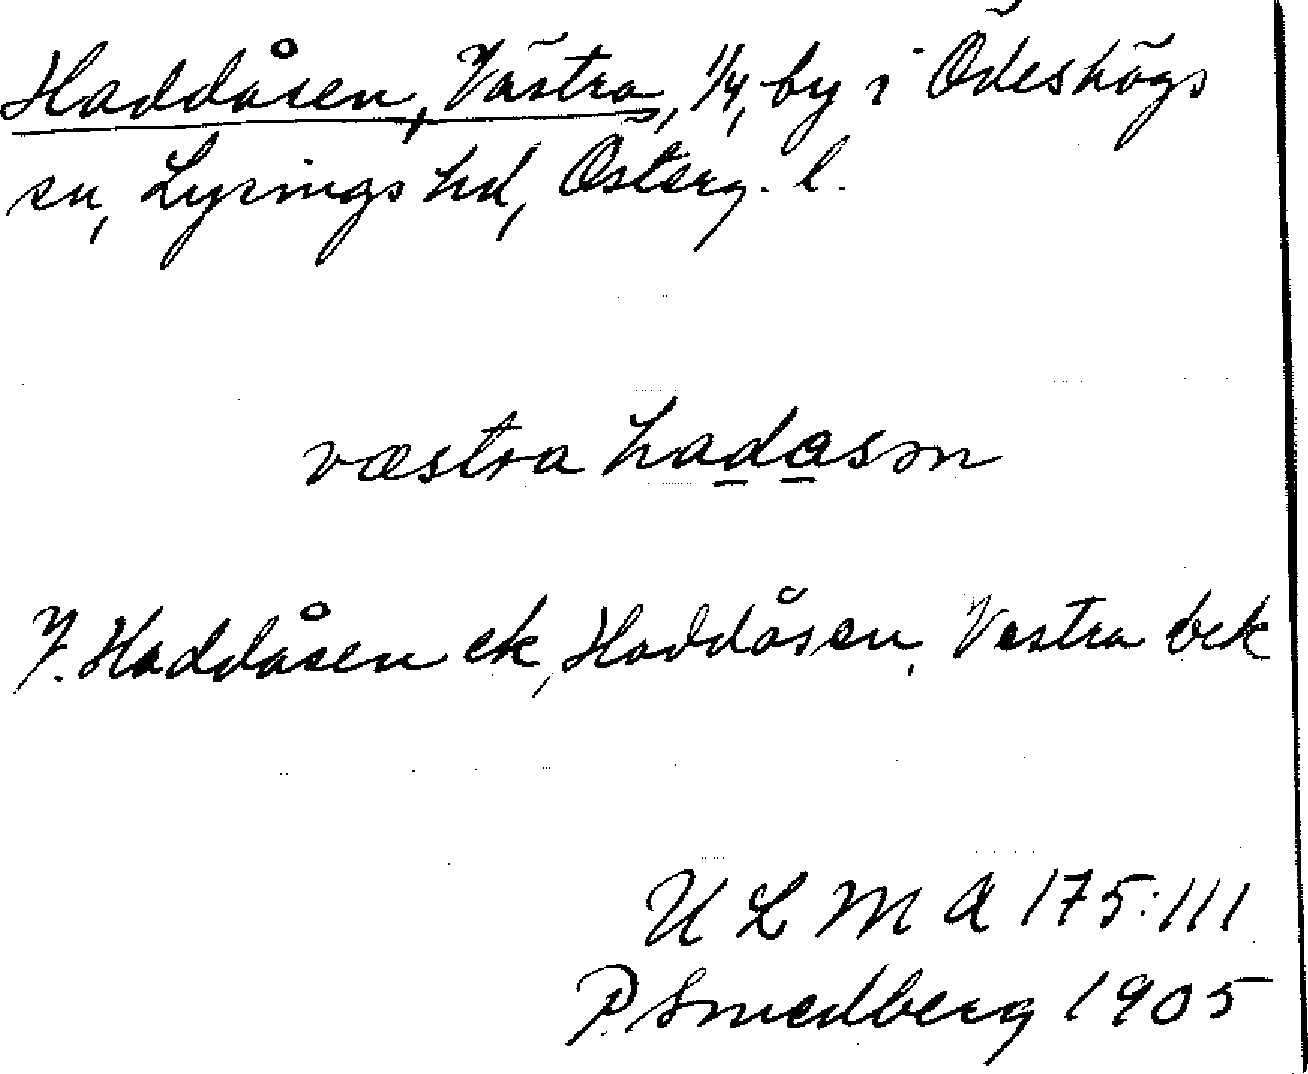 Haddåsen, Västra, 1/4, by i Ödeshögs
sn, Lysings hd, Österg. l.
væstra hadasən
J. Haddåsen ek, Haddåsen, Vestra bek
U L M A 175:111
P. Smedberg 1905